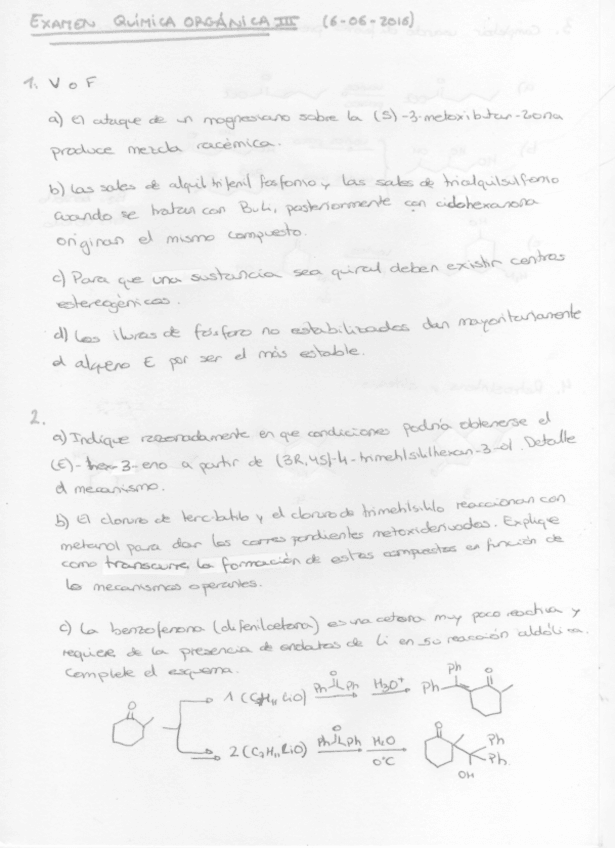 EXAMEN QUÍMICA ORGÁNICA III (6-06-2016)
1. V o F
a) El ataque de un magnesiano sobre la (S)-3-metoxibutan-2ona
produce mezcla racémica.
b) Las sales de alquil trifenil fosfonio y las sales de trialquilsulfonio
cuando se tratan con BuLi, posteriormente con ciclohexanona
originan el mismo compuesto.
c) Para que una sustancia sea quiral deben existir centros
estereogénicos.
d) Los iluros de fósforo no estabilizados dan mayoritariamente
el alqueno E por ser el más estable.
2.
a) Indique razonadamente en que condiciones podría obtenerse el
(E)-hex-3-eno a partir de (3R,4S)-4-trimetilsililhexan-3-ol. Detalle
el mecanismo.
b) El cloruro de tercbutilo y el cloruro de trimetilsililo reaccionan con
metanol para dar los correspondientes metoxiderivados. Explique
como transcurre la formación de estos compuestos en función de
los mecanismos operantes.
c) La benzofenona (difenilcetona) es una cetona muy poco reactiva y
requiere de la presencia de enolatos de Li en su reacción aldólica.
Complete el esquema.
O
1 (C7H11LiO) Ph O Ph H3O+ Ph Ph O
2 (C7H11LiO) Ph O Ph H2O 0°C O Ph Ph OH